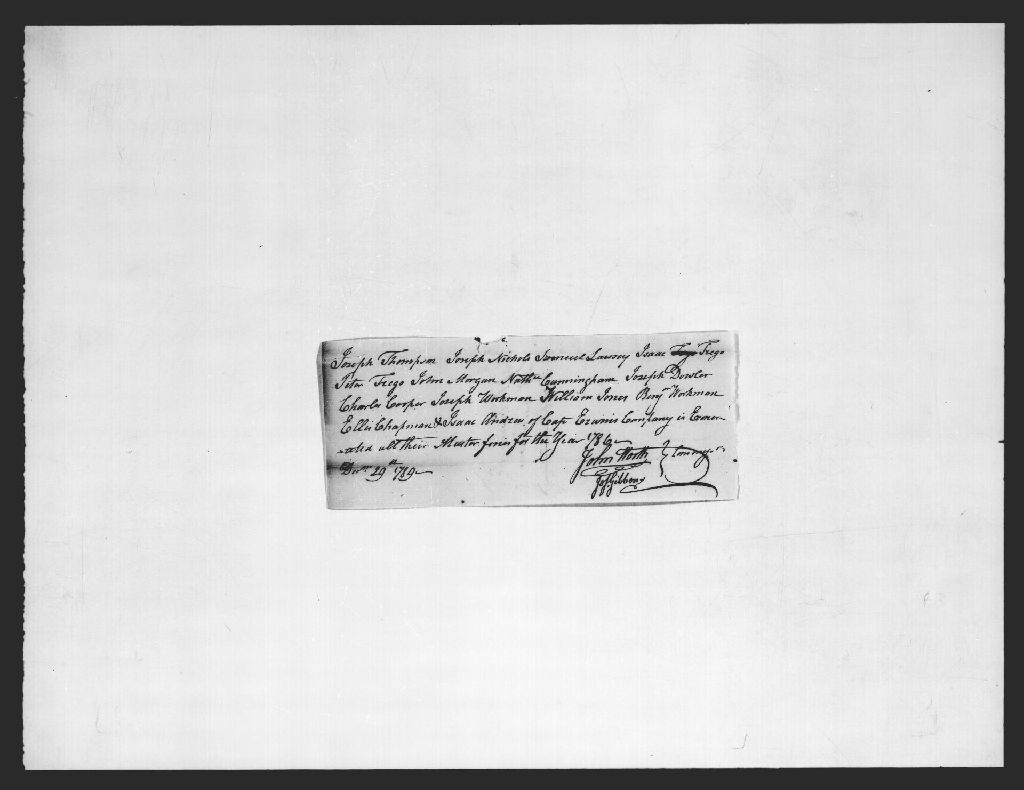 Joseph Thompson Joseph Nichols Samuel Lawrey Isaac Trego
Peter Trego John Morgan Nath.ll Cunningham Joseph Dowler
Charles Cooper Joseph Workman William Jones Benj.n Workman
Ellis Chapman & Isaac Andrew of Cap.t Erwin's Company is Exoner
-ated all their Muster fines for the Year 1786
John Worth
Dec.r 19th 1789
Jos Gibbons